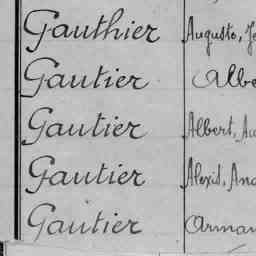 Gauthier Auguste, Je
Gautier Albe
Gautier Albert, Au
Gautier Alexis, And
Gautier Arman